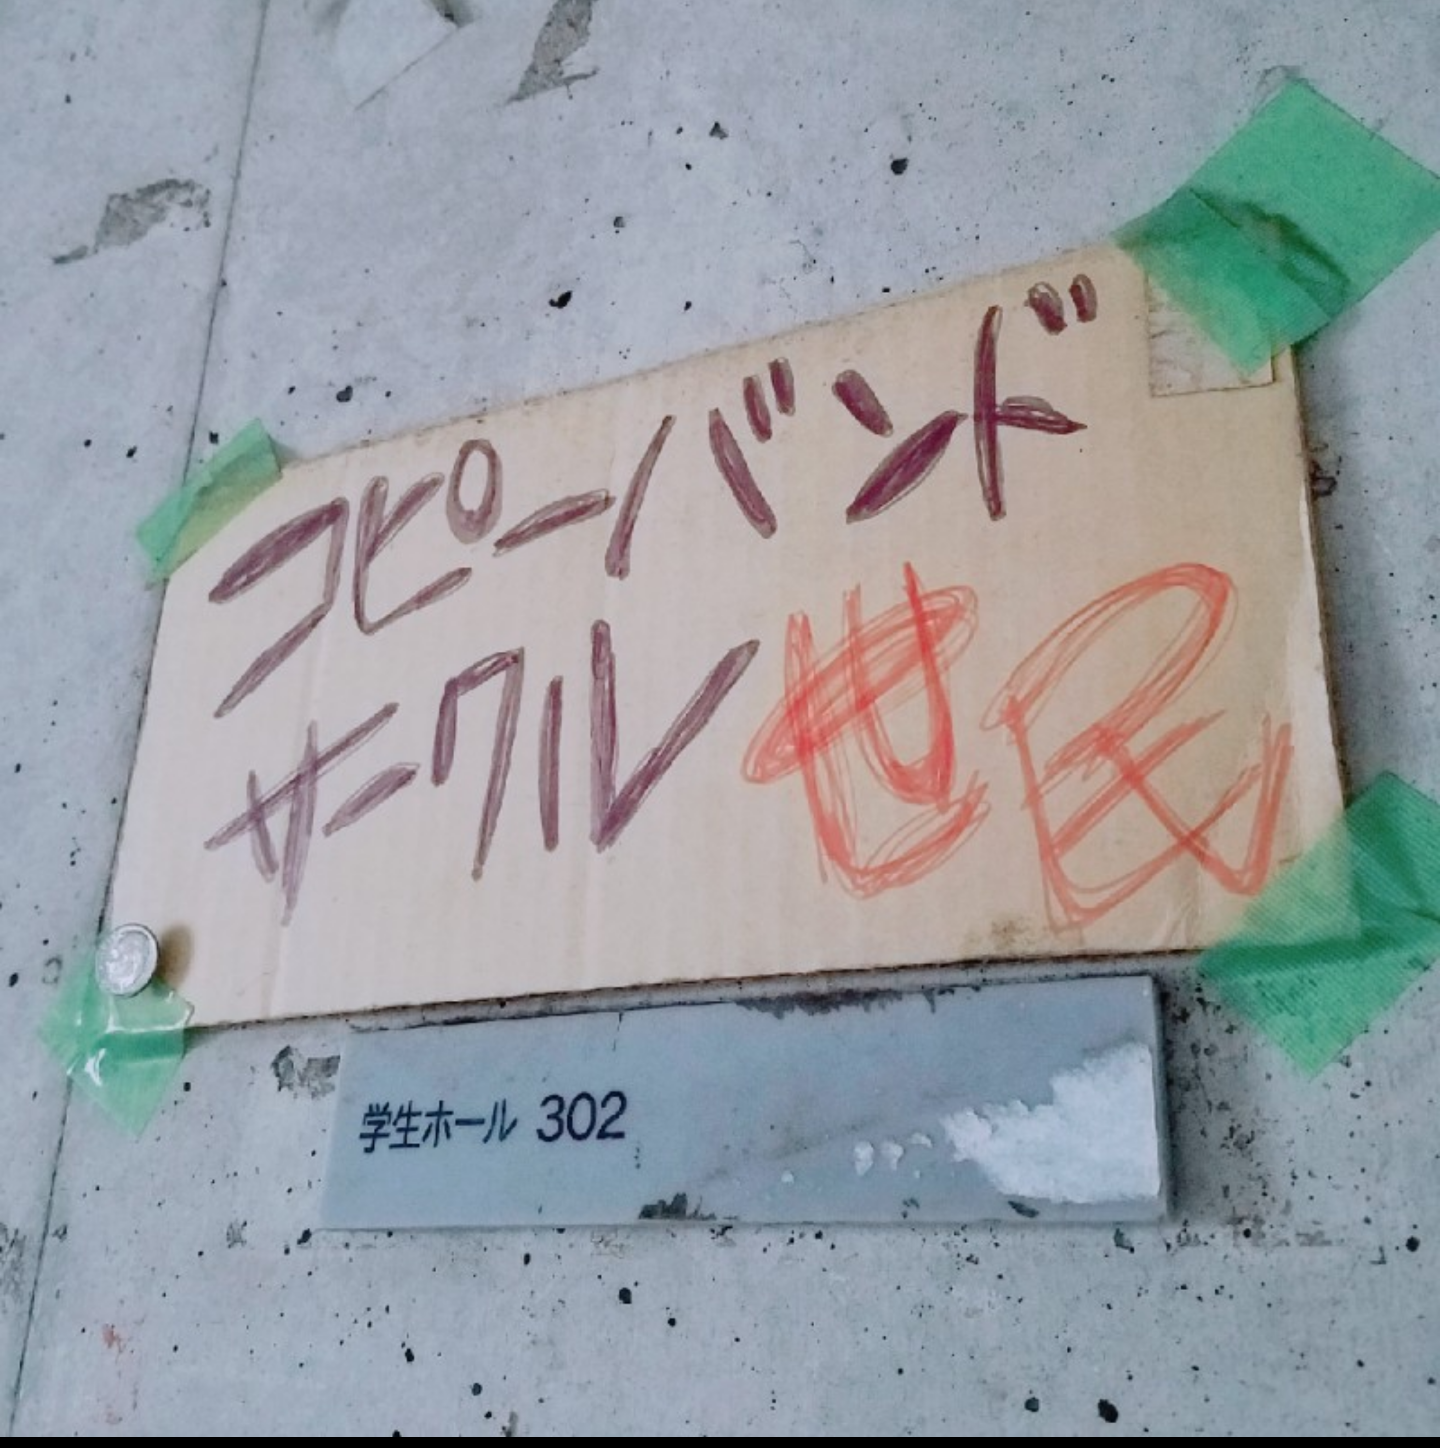 コピーバンド
サークル 世民
学生ホール 302